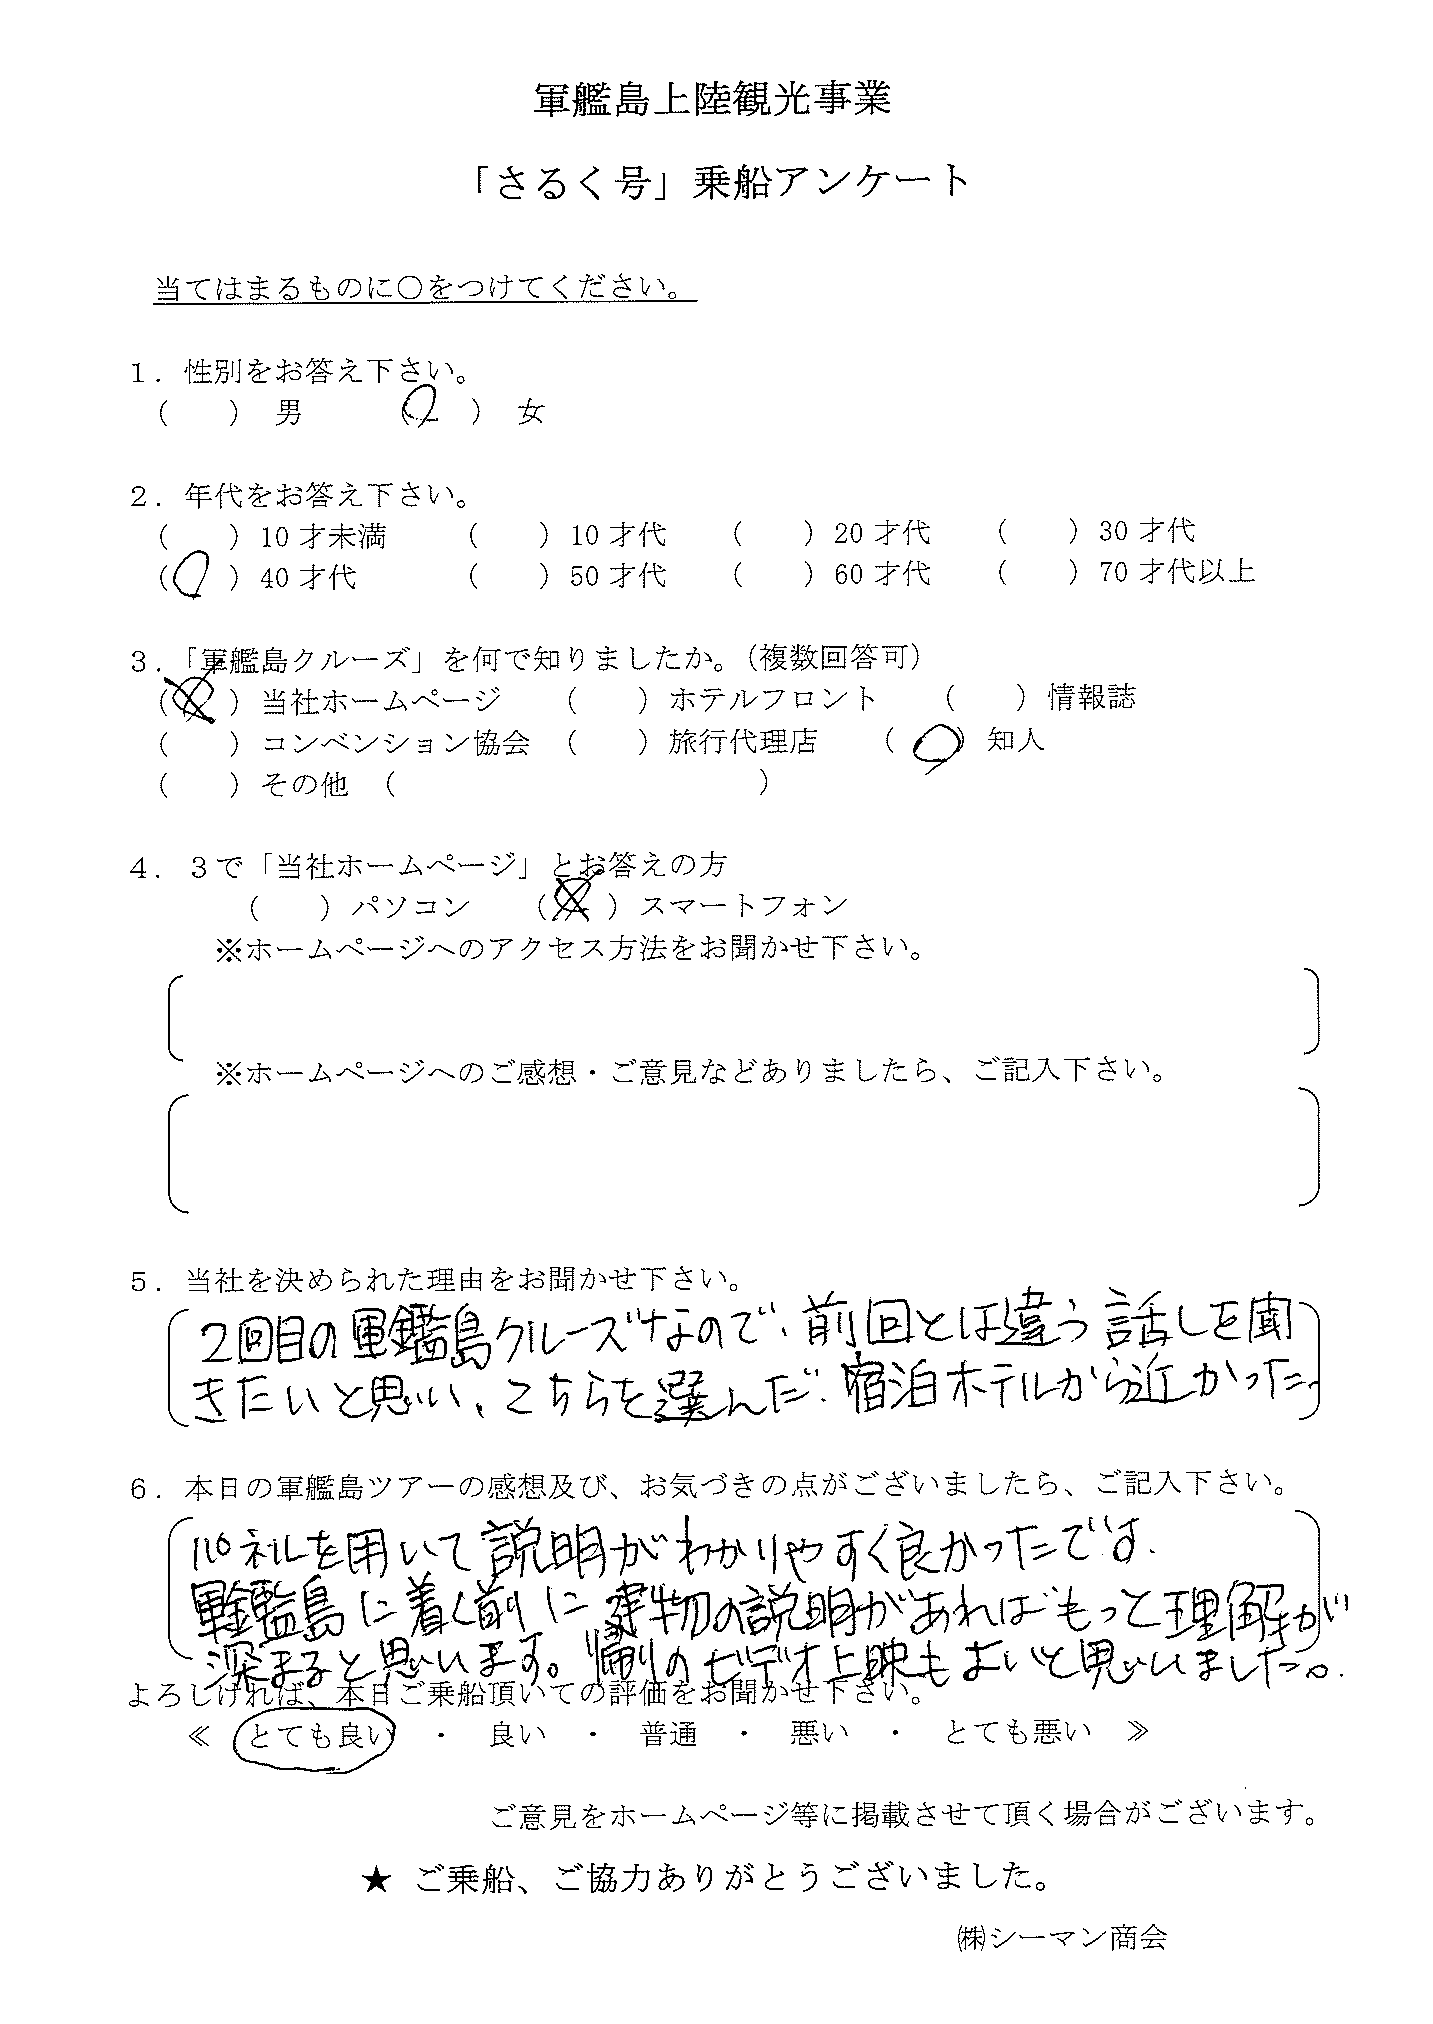 軍艦島上陸観光事業
「さるく号」乗船アンケート
当てはまるものに○をつけてください。
１．性別をお答え下さい。
（　　）　男　　（○　）　女
２．年代をお答え下さい。
（　　）10才未満　（　　）10才代　（　　）20才代　（　　）30才代
（○　）40才代　（　　）50才代　（　　）60才代　（　　）70才代以上
３．「軍艦島クルーズ」を何で知りましたか。（複数回答可）
（　　）当社ホームページ　（　　）ホテルフロント　（　　）情報誌
（　　）コンベンション協会　（　　）旅行代理店　（　○）知人
（　　）その他　（　　　　　　　　　　　　）
４．３で「当社ホームページ」とお答えの方
（　　）パソコン　（　　）スマートフォン
※ホームページへのアクセス方法をお聞かせ下さい。
※ホームページへのご感想・ご意見などありましたら、ご記入下さい。
５．当社を決められた理由をお聞かせ下さい。
2回目の軍鑑島クルーズなので、前回とは違う話しを聞
きたいと思い、こちらを選んだ。宿泊ホテルから近かった。
６．本日の軍艦島ツアーの感想及び、お気づきの点がございましたら、ご記入下さい。
パネルを用いて説明がわかりやすく良かったです。
軍鑑島に着く前に建物の説明があればもっと理解が
深まると思います。帰りのビデオ上映もよいと思いました。
よろしければ、本日ご乗船頂いての評価をお聞かせ下さい。
≪　とても良い　・　良い　・　普通　・　悪い　・　とても悪い　≫
ご意見をホームページ等に掲載させて頂く場合がございます。
★ ご乗船、ご協力ありがとうございました。
㈱シーマン商会